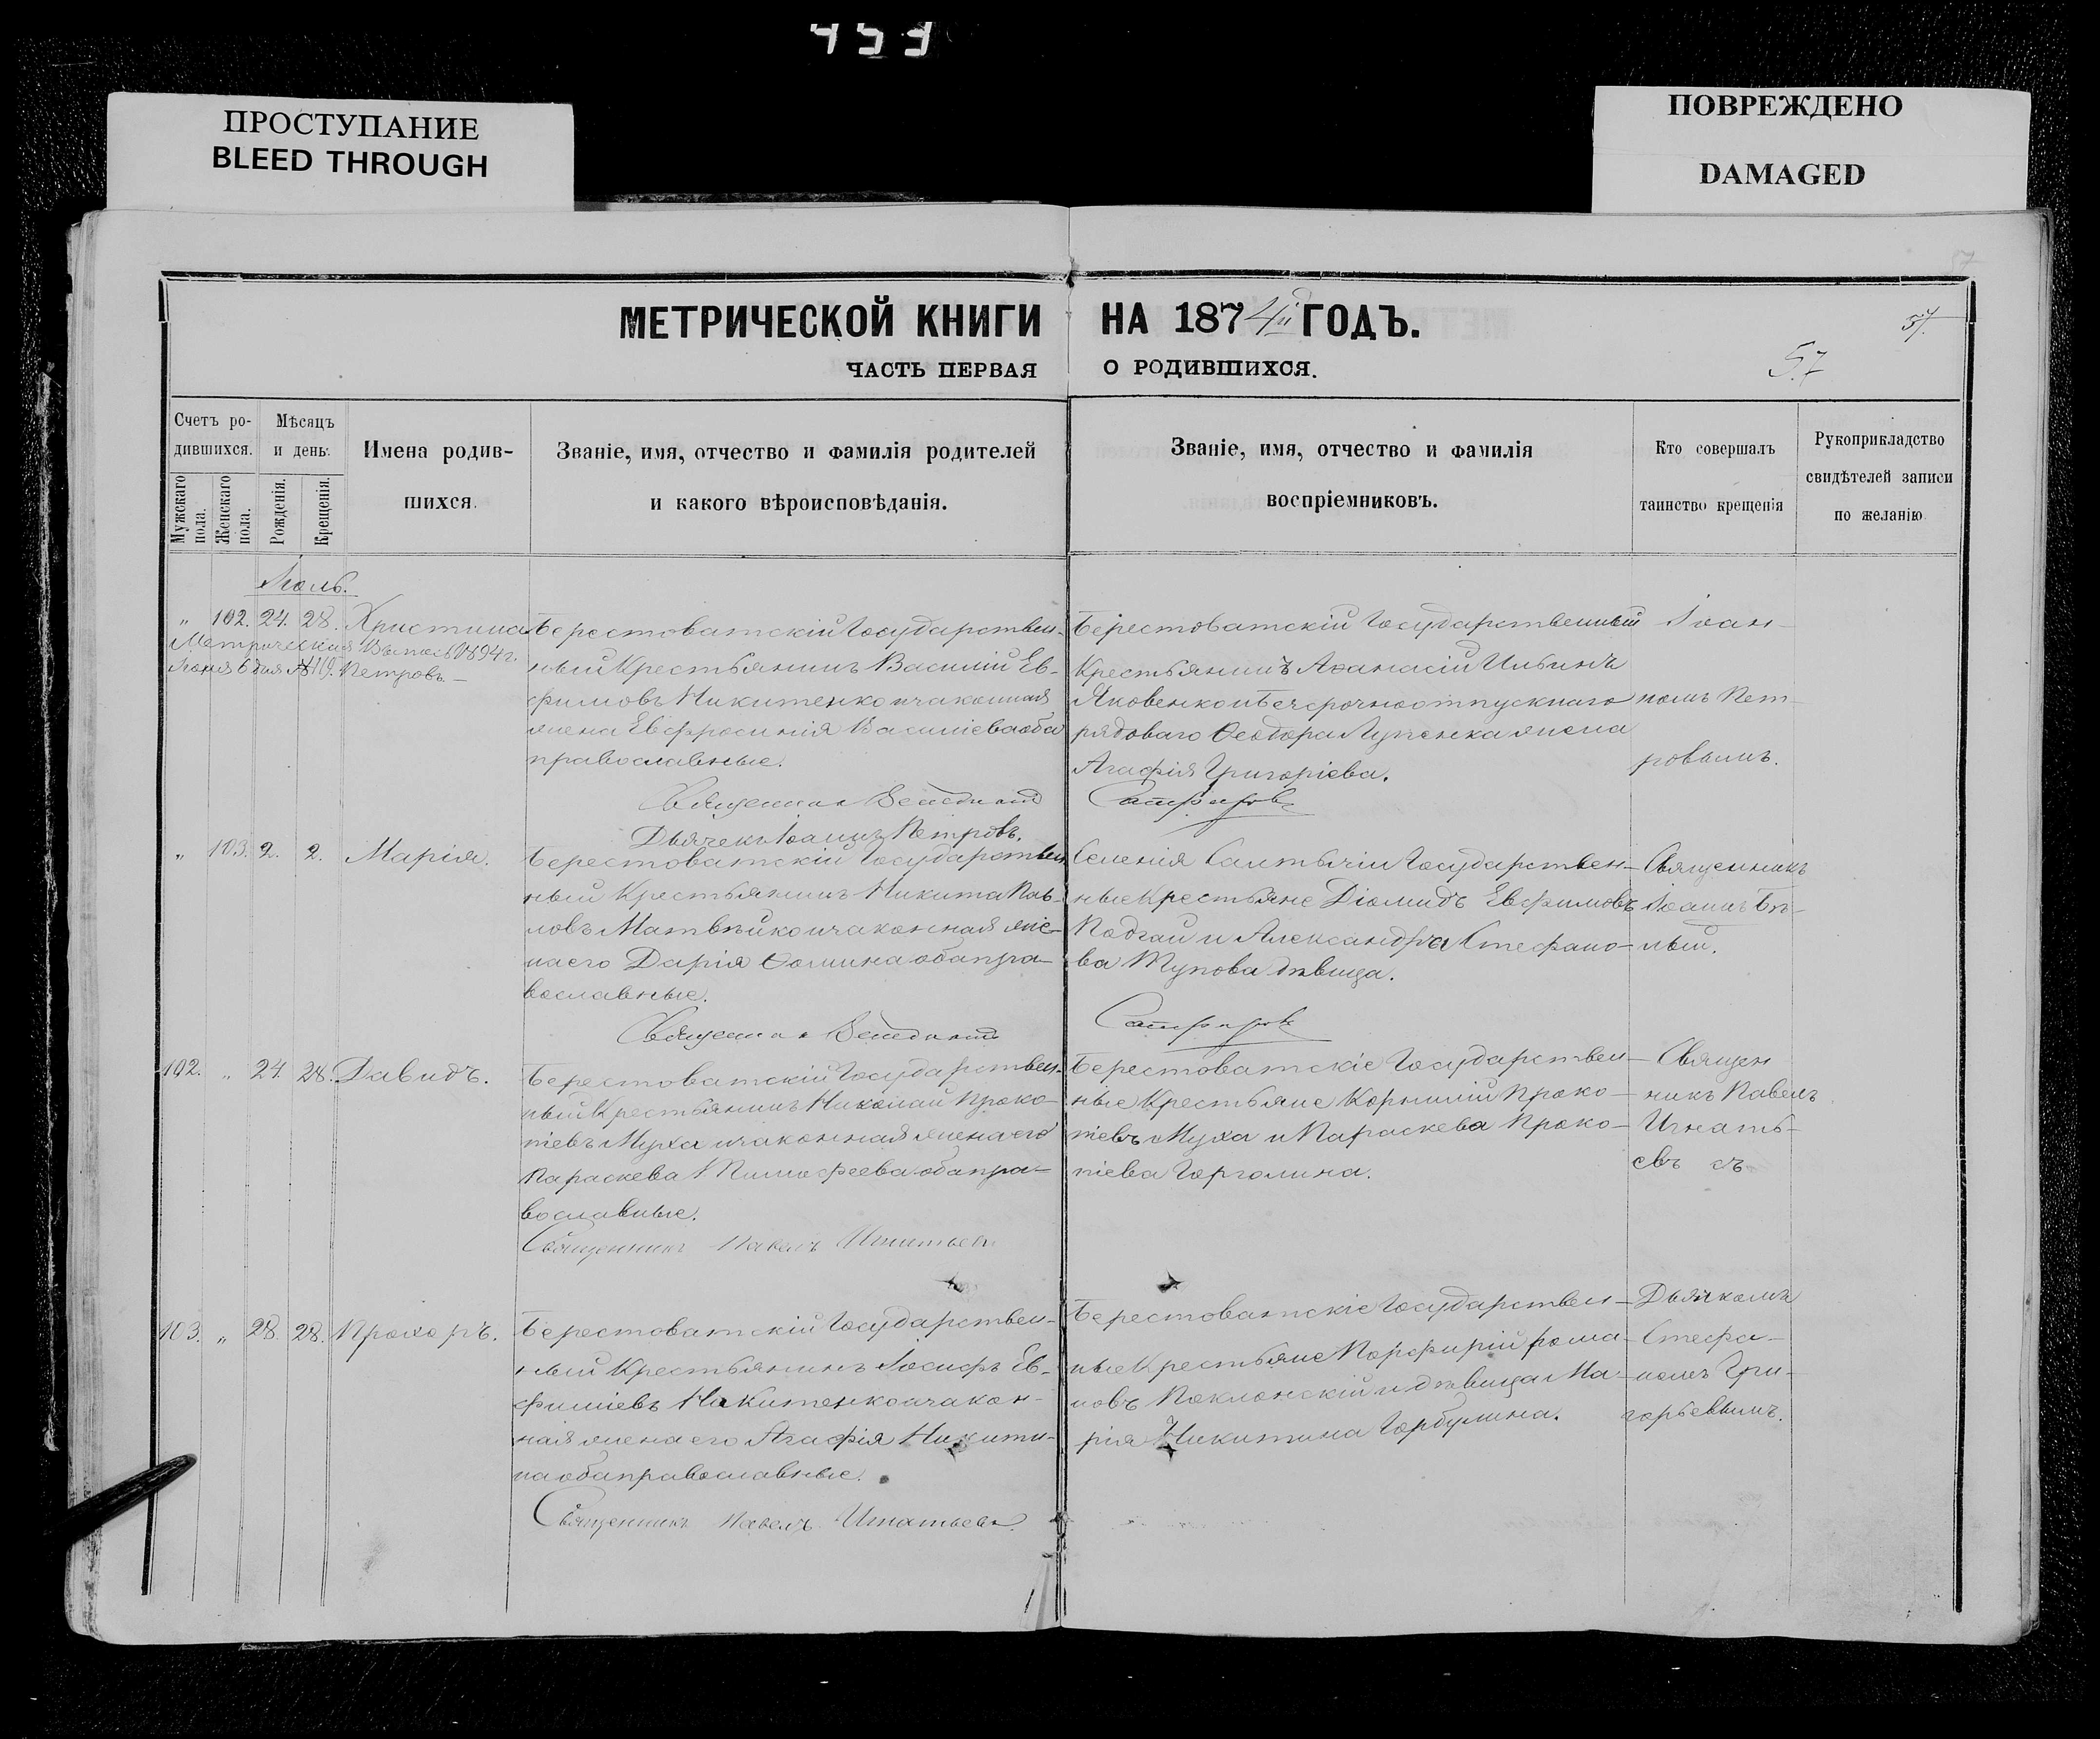 ПРОСТУПАНИЕ
BLEED THROUGH
ПОВРЕЖДЕНО
DAMAGED
МЕТРИЧЕСКОЙ КНИГИ НА 1874й ГОДЪ.
ЧАСТЬ ПЕРВАЯ О РОДИВШИХСЯ.
57
57.
Счетъ ро-
дившихся.
Мужскаго пола.
Женскаго пола.
Мѣсяцъ
и день.
Рожденія.
Крещенія.
Имена родив-
шихся.
Званіе, имя, отчество и фамилія родителей
и какого вѣроисповѣданія.
Званіе, имя, отчество и фамилія
воспріемниковъ.
Кто совершалъ
таинство крещенія
Рукоприкладство
свидѣтелей записи
по желанію
Іюль.
" 102. 24. 28. Христина
Метрическая Выпись 1894 г.
Іюня 6 дня № 119. Петровъ
Берестоватскій Государствен-
ный Крестьянинъ Василій Ев-
фимовъ Никитенко и законная
жена Евфросинія Васильева оба
православные.
Священник
Дьячекъ Іоаннъ Петровъ.
Берестоватскій Государственный
Крестьянинъ Аѳанасій Ильинъ
Яковенко и безсрочноотпускнаго
рядоваго Ѳеодора Луценка жена
Агафія Григоріева.
Іоан-
номъ Пет-
ровымъ.
" 103. 2. 2. Марія.
Берестоватскій Государствен
ный Крестьянинъ Никита Пав-
ловъ Матвѣйко и законная же-
на его Дарія Ѳомина оба пра-
вославные.
Священник
Селенія Салтычіи Государствен-
ные Крестьяне Діомидъ Евфимовъ
Подгай и Александра Стефано-
ва Тупова дѣвица.
Священникъ
Іоаннъ Бѣ-
лый.
102. " 24. 28. Давидъ.
Берестоватскій Государствен-
ный Крестьянинъ Николай Проко-
піевъ Муха и законная жена его
Параскева Тимофеева оба пра-
вославные.
Священникъ Павелъ Игнатьевъ
Берестоватскіе Государствен-
ные Крестьяне Корнилій Проко-
піевъ Муха и Параскева Проко-
піева Горголина.
Священ
никъ Павелъ
Игнать-
евъ съ
103. " 28. 28. Прохоръ.
Берестоватскій Государствен-
ный Крестьянинъ Іосифъ Ев-
фиміевъ Никитенко и закон-
ная жена его Агафія Никити-
на оба православные.
Священникъ Павелъ Игнатьевъ.
Берестоватскіе Государствен-
ные Крестьяне Порфирій Рома-
новъ Поклонскій и дѣвица Ма-
рія Никитина Горбулина.
Дьячкомъ
Стефа-
номъ Гри-
горьевымъ.